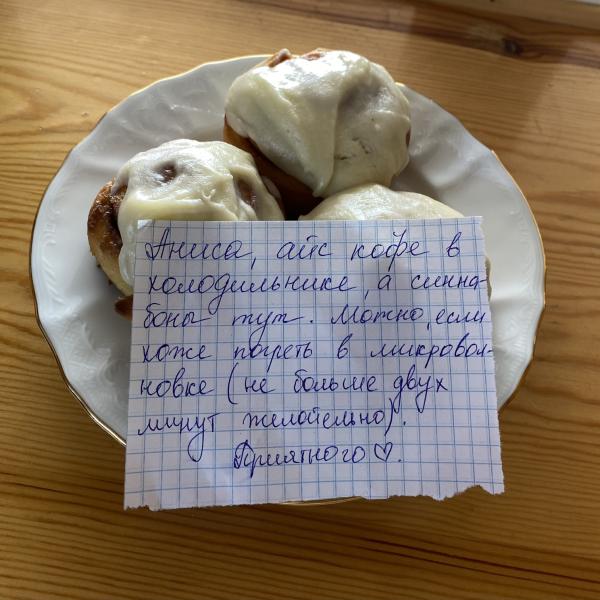 Аниса, айс кофе в
холодильнике, а синна-
боны тут. Можно, если
хоже погреть в микровол-
новке (не больше двух
минут желательно).
Приятного ♡.